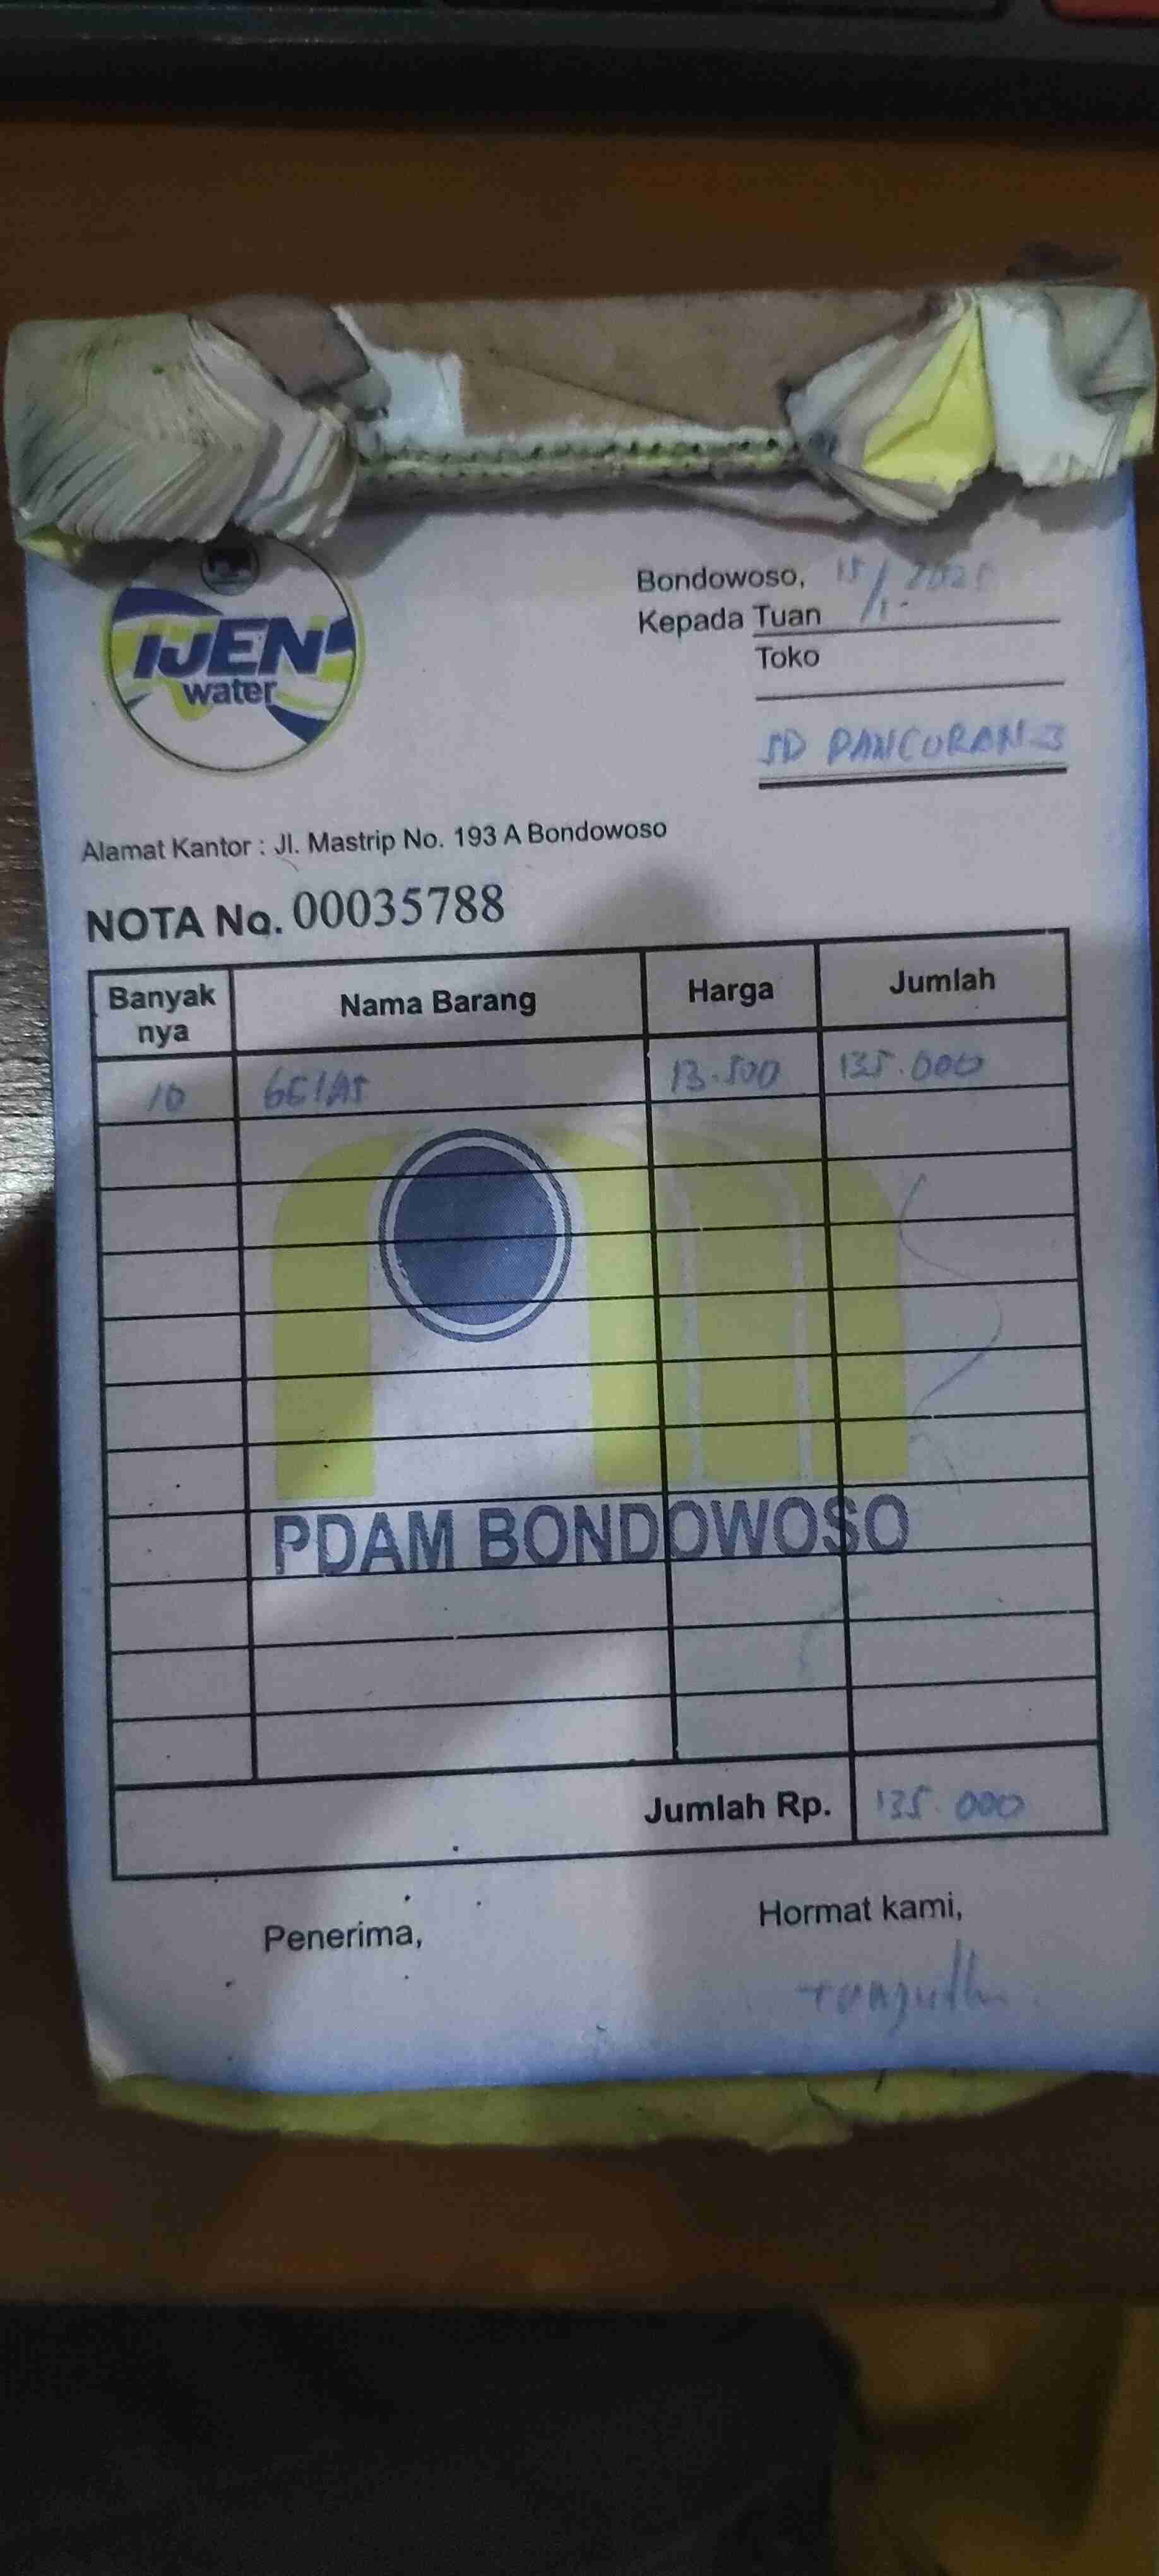 IJEN
water
Bondowoso, 15/1-2025
Kepada Tuan
Toko
SD PANCURAN 3
Alamat Kantor : Jl. Mastrip No. 193 A Bondowoso
NOTA No. 00035788
Banyak nya Nama Barang Harga Jumlah
10 GElAS 13.500 135.000
PDAM BONDOWOSO
Jumlah Rp. 135.000
Penerima, Hormat kami,